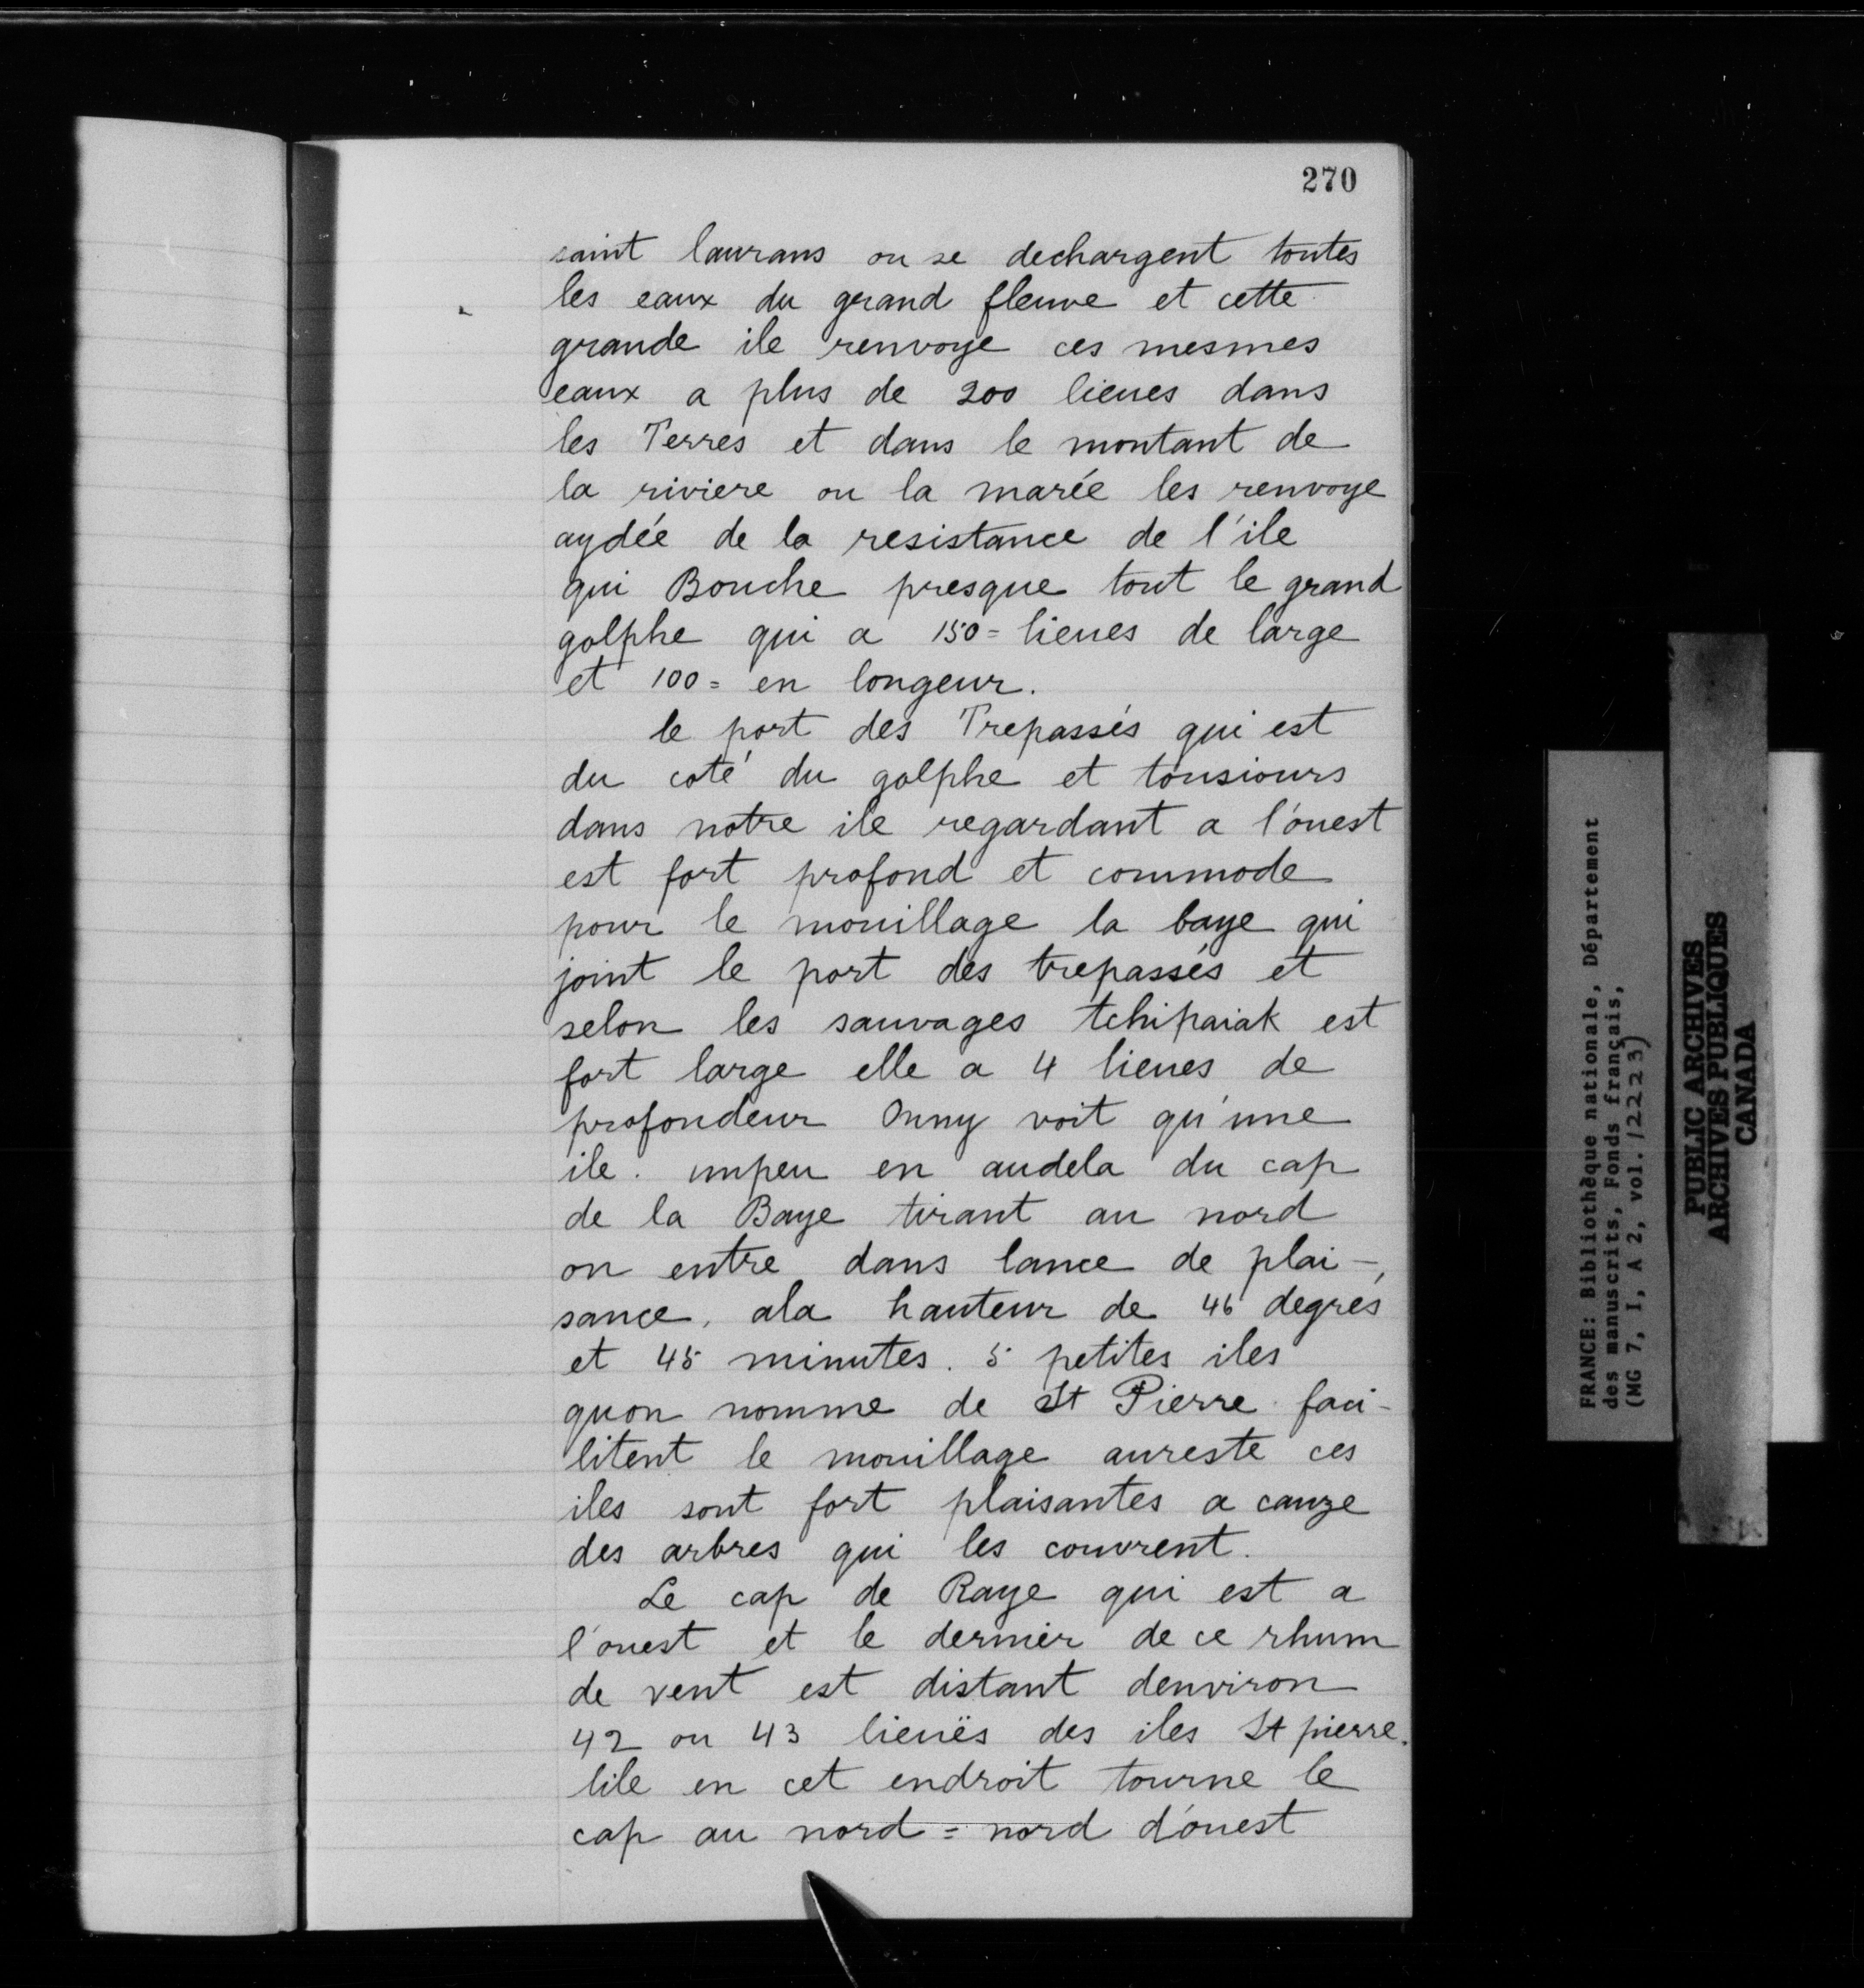 270
saint laurans ou se dechargent toutes
les eaux du grand fleuve et cette
grande ile renvoye ces mesmes
eaux a plus de 200 lieues dans
les Terres et dans le montant de
la riviere ou la marée les renvoye
aydée de la resistance de l'ile
qui Bouche presque tout le grand
golphe qui a 150= lieues de large
et 100= en longeur.
le port des Trepassés qui est
du coté du golphe et tousiours
dans notre ile regardant a l'ouest
est fort profond et commode
pour le mouillage la baye qui
joint le port des trepassés et
selon les sauvages tchipaiak est
fort large elle a 4 lieues de
profondeur Onny voit qu'une
ile. unpeu en audela du cap
de la Baye tirant au nord
on entre dans lance de plai-
sance, ala hauteur de 46 degres
et 45 minutes. 5 petites iles
quon nomme de St Pierre faci-
litent le mouillage aureste ces
iles sont fort plaisantes a cauze
des arbres qui les couvrent.
Le cap de Raye qui est a
l'ouest et le dernier de ce rhum
de vent est distant denviron
42 ou 43 lieuës des iles St pierre.
lile en cet endroit tourne le
cap au nord = nord d'ouest
FRANCE: Bibliothèque nationale, Département
des manuscrits, Fonds français,
(MG 7, I, A 2, vol. 12223)
PUBLIC ARCHIVES
ARCHIVES PUBLIQUES
CANADA